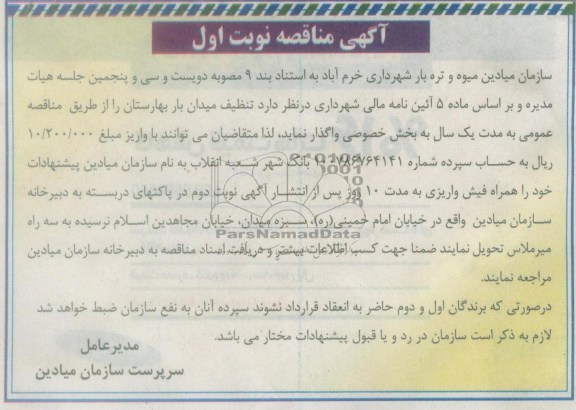 آگهی مناقصه نوبت اول
سازمان میادین میوه و تره بار شهرداری خرم آباد به استناد بند ۹ مصوبه دویست و سی و پنجمین جلسه هیات
مدیره و بر اساس ماده ۵ آئین نامه مالی شهرداری درنظر دارد تنظیف میدان بار بهارستان را از طریق مناقصه
عمومی به مدت یک سال به بخش خصوصی واگذار نماید، لذا متقاضیان می توانند با واریز مبلغ ۱۰/۲۰۰/۰۰۰
ریال به حساب سپرده شماره بانک شهر شعبه انقلاب به نام سازمان میادین پیشنهادات
خود را همراه فیش واریزی به مدت ۱۰ روز پس از انتشار آگهی نوبت دوم در پاکتهای دربسته به دبیرخانه
سازمان میادین واقع در خیابان امام خمینی(ره)، سبزه میدان، خیابان مجاهدین اسلام نرسیده به سه راه
میرملاس تحویل نمایند ضمنا جهت کسب اطلاعات بیشتر و دریافت اسناد مناقصه به دبیرخانه سازمان میادین
مراجعه نمایند.
درصورتی که برندگان اول و دوم حاضر به انعقاد قرارداد نشوند سپرده آنان به نفع سازمان ضبط خواهد شد
لازم به ذکر است سازمان در رد و یا قبول پیشنهادات مختار می باشد.
مدیرعامل
سرپرست سازمان میادین
ParsNamadData